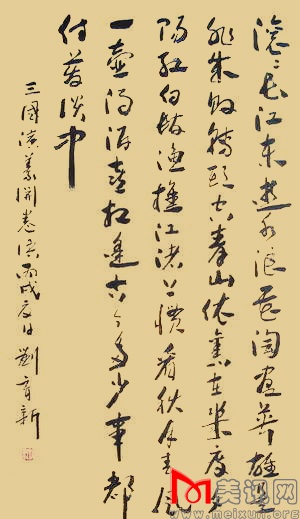 滚滚长江东逝水浪花淘尽英雄是
非成败转头空青山依旧在几度夕
阳红白发渔樵江渚上惯看秋月春风
一壶浊酒喜相逢古今多少事都
付笑谈中
三國演義開卷语丙戌夏日劉育新
美讯网
www.meixun.org